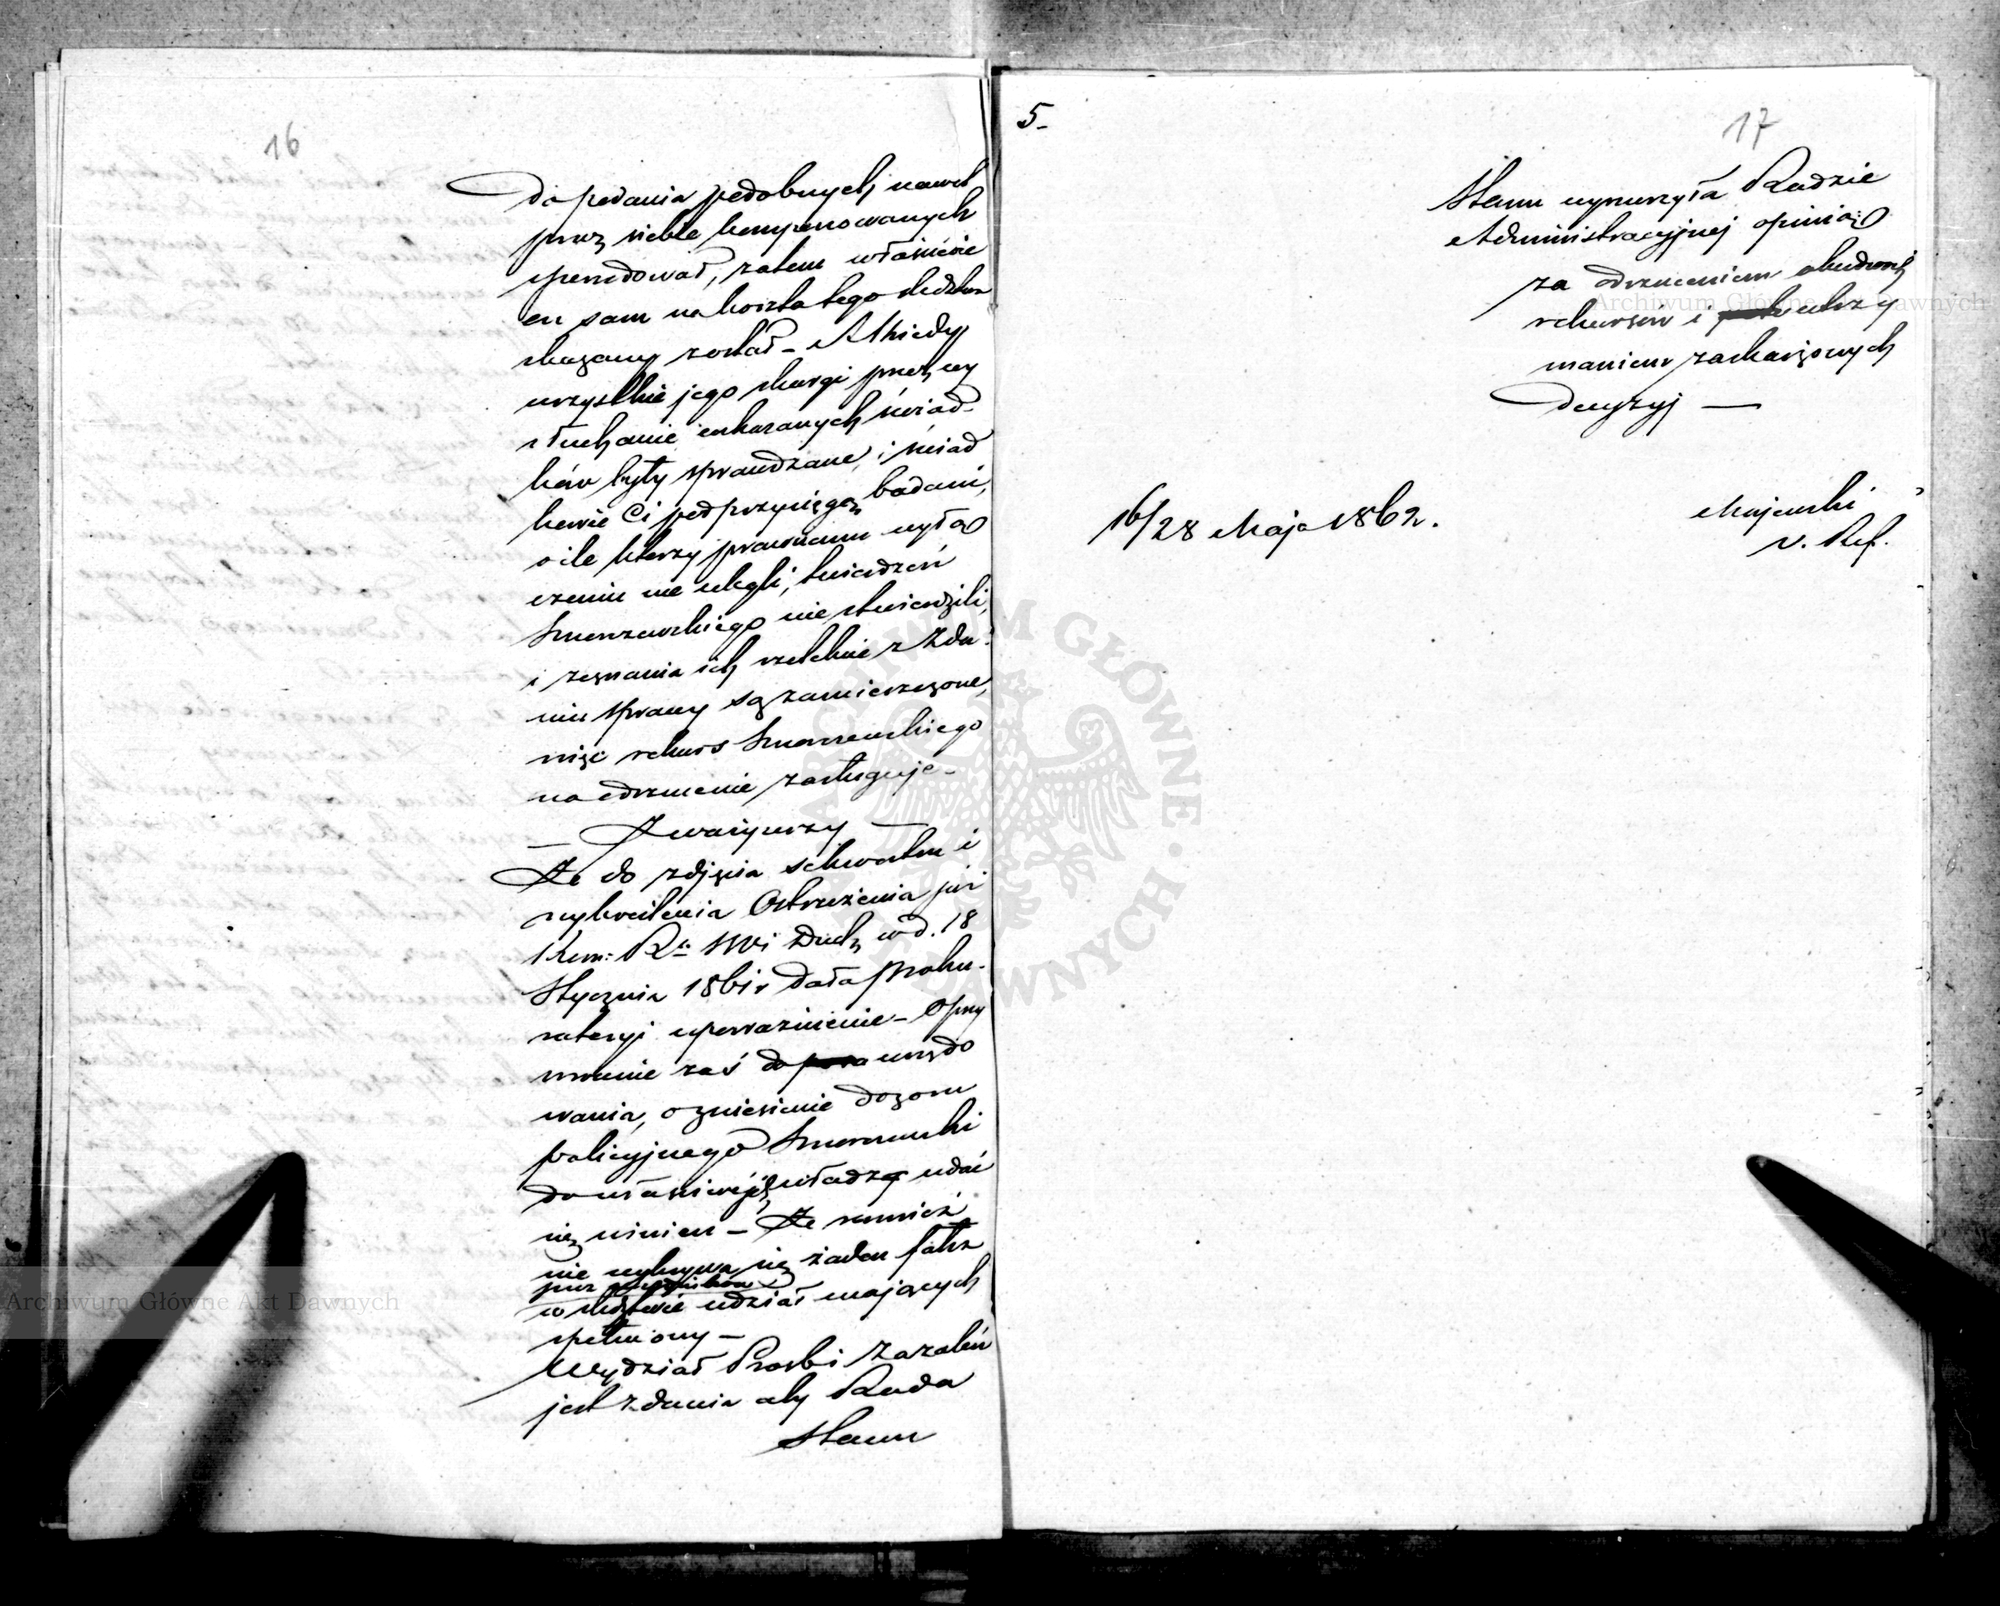 16
do podania podobnych nawet
przez siebie komponowanych
spowodował, zatem właściwie
on sam na koszta tego śledztwa
skazany został – A kiedy
wszystkie jego skargi przez wy
słuchanie wskazanych świad-
ków były sprawdzane, i świad
kowie Ci pod przysięgą badani,
o ile którzy prawnemu wyłą
czeniu nie ulegli, twierdzeń
Smorzewskiego nie stwierdzili,
i zeznania ich rzetelnie w Zda-
niu sprawy są zamieszczone,
więc rekurs Smorzewskiego
na odrzucenie zasługuje –
– Zważywszy –
Że do zdjęcia sekwestru i
wykreślenia Ostrzeżenia już
Kom: Rz: Duch: w d. 18
Stycznia 1861 r dała Proku-
ratoryi upoważnienie –
zaś do urzędo
wania, o zniesienie dozoru
policyjnego Smorzewski
do właściwej władzy udać
się winien – Że również
nie wykrywa się żaden fałsz
przez urzędników
w śledztwie udział mających
spełniony –
Wydział Prośb i Zażaleń
jest zdania aby Rada
Stanu
5.
17
Stanu wynurzyła Radzie
Administracyjnej opinią
za odrzuceniem obudwóch
rekursów i utrzy
maniem zaskarżonych
decyzyj —
16/28 Maja 1862.
Majewski
r. Ref.
Archiwum Główne Akt Dawnych
Archiwum Główne Akt Dawnych
ARCHIWUM GŁÓWNE AKT DAWNYCH